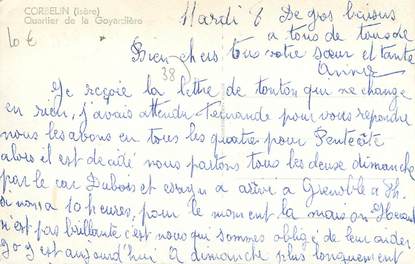 CORBELIN (Isère)
Quartier de la Goyardière
10 €
38
Mardi 6 De gros baisers
a tous de tous de
Bien chers tous votre sœur et tante
Je reçoie la lettre de tonton qui ne change
en rien, j'avais attendu Fernande pour vous reprendre
nous les abons en tous les quatres pour Pentecôte
alors il est décidé nous partons tous les deux dimanche
par le car Dubois et on arrive a Grenoble a
10 heures, pour le moment la maison
n'est pas brillante c'est nous qui sommes obligé de leur aider
est aujourd'hui. A dimanche plus longuement